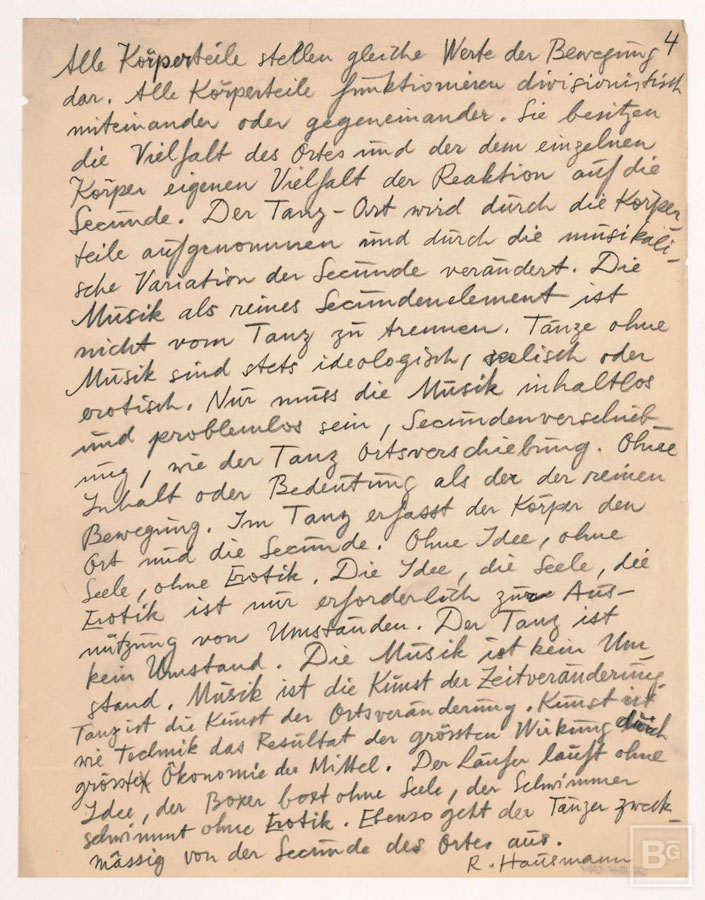 4
Alle Körperteile stellen gleiche Werte der Bewegung
dar. Alle Körperteile funktionieren divisionistisch
miteinander oder gegeneinander. Sie besitzen
die Vielfalt des Ortes und der dem einzelnen
Körper eigenen Vielfalt der Reaktion auf die
Secunde. Der Tanz-Ort wird durch die Körper
teile aufgenommen und durch die musikali-
sche Variation der Secunde verändert. Die
Musik als reines Secundenelement ist
nicht vom Tanz zu trennen. Tänze ohne
Musik sind stets ideologisch, seelisch oder
erotisch. Nur muss die Musik inhaltlos
und problemlos sein, Secundenverschieb
ung, wie der Tanz Ortsverschiebung. Ohne
Inhalt oder Bedeutung als der der reinen
Bewegung. Im Tanz erfasst der Körper den
Ort und die Secunde. Ohne Idee, ohne
Seele, ohne Erotik. Die Idee, die Seele, die
Erotik ist nur erforderlich zur Aus-
nützung von Umständen. Der Tanz ist
kein Umstand. Die Musik ist kein Um
stand. Musik ist die Kunst der Zeitveränderung
Tanz ist die Kunst der Ortsveränderung. Kunst ist
wie Technik das Resultat der grössten Wirkung durch
grösste Ökonomie der Mittel. Der Läufer läuft ohne
Idee, der Boxer boxt ohne Seele, der Schwimmer
schwimmt ohne Erotik. Ebenso geht der Tänzer zweck-
mässig von der Secunde des Ortes aus.
R. Hausmann
BG